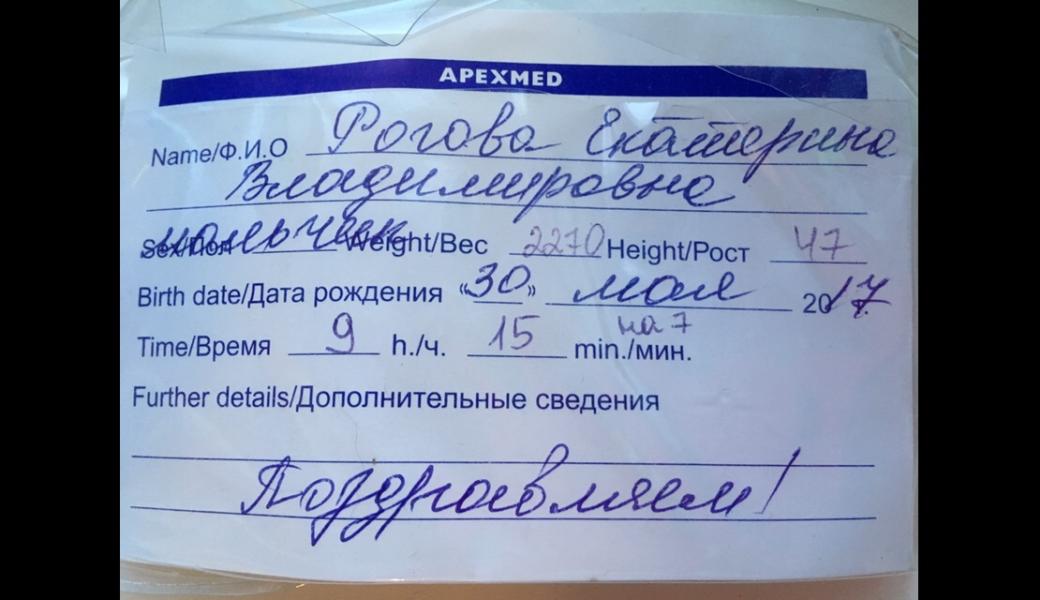 APEXMED
Name/Ф.И.О Рогова Екатерина
Владимировна
Sex/Пол мальчик Weight/Вес 2270 Height/Рост 47
Birth date/Дата рождения «30» мая 2017
на 7
Time/Время 9 h./ч. 15 min./мин.
Further details/Дополнительные сведения
Поздравляем!